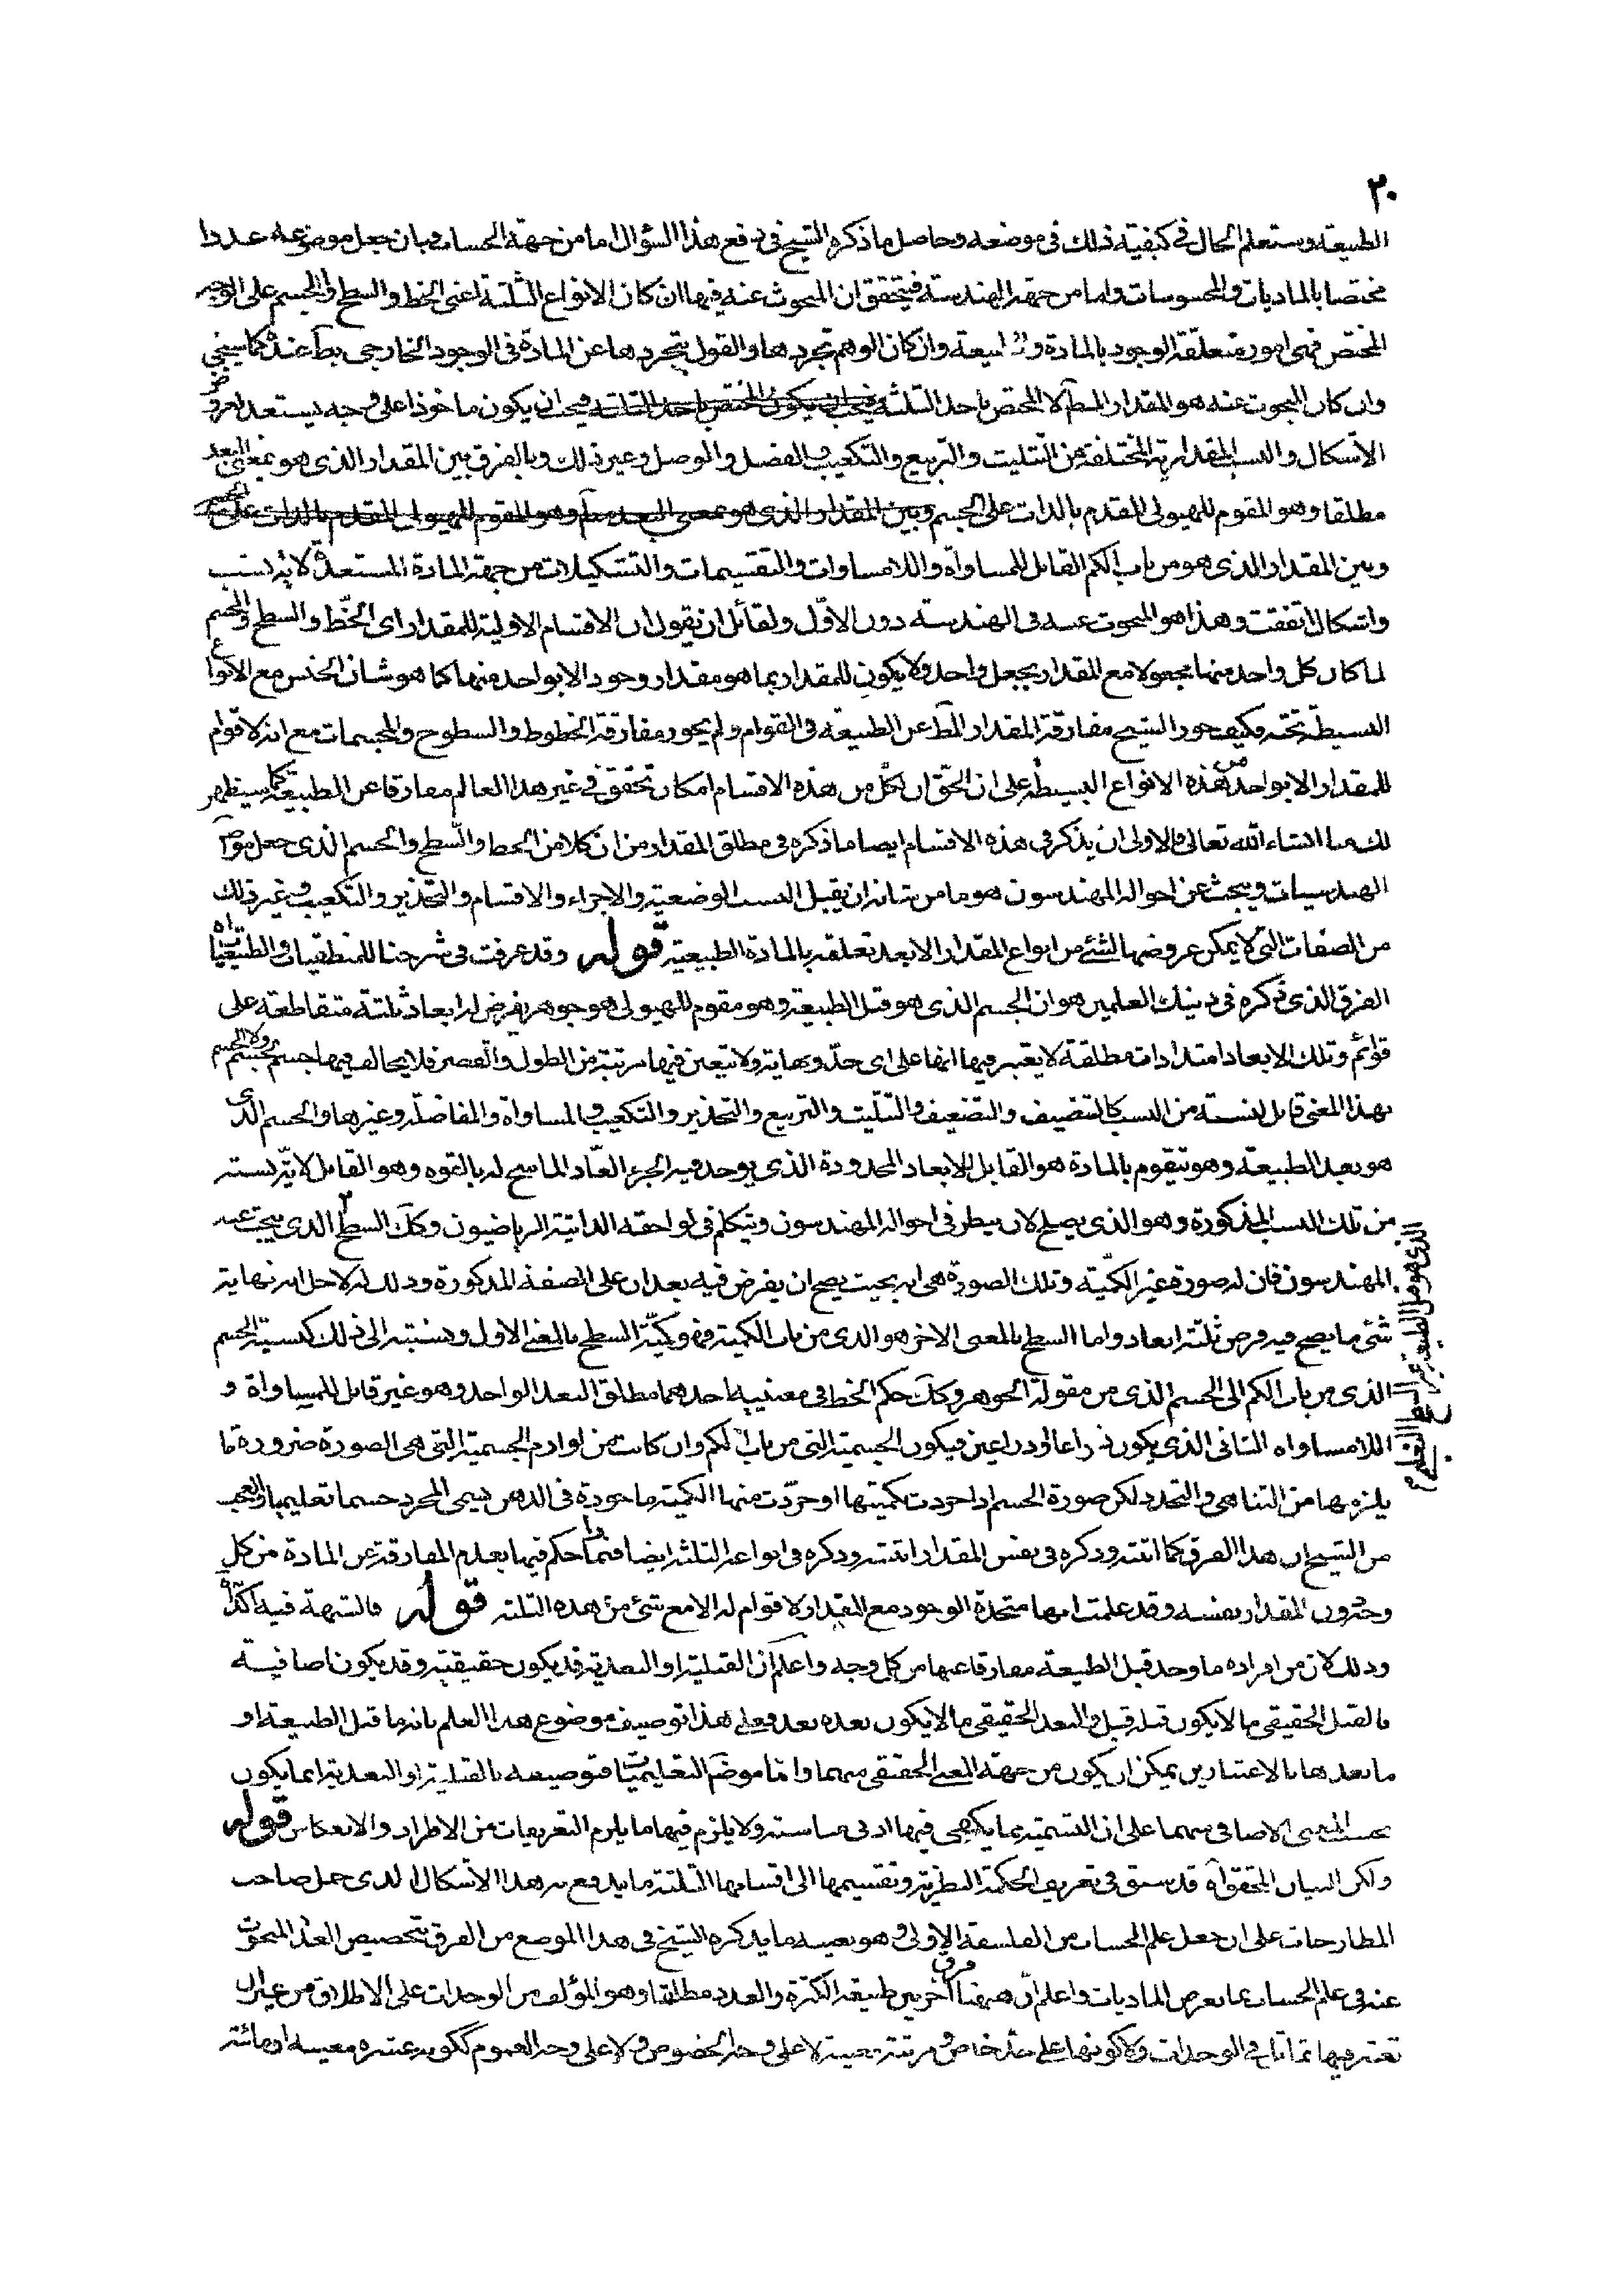 ٢٠
الطبيعة وستعلم الحال في كيفية ذلك في موضعه وحاصل ما ذكره الشيخ في دفع هذا السؤال اما من جهة الحساب فبان جعل موضوعه عددا
مختصا بالماديات والمحسوسات واما من جهة الهندسة فيتحقق ان المبحوث عنه فيها ان كان الانواع الثلثة اعنى الخط والسطح والجسم على الوجه
المختص فهى امور متعلقة الوجود بالمادة والطبيعة وان كان الوهم تجردها والقول بتجردها عن المادة فى الوجود الخارجى بط عنده كما سيجئ
وان كان المبحوث عنه هو المقدار المط لا المختص باحد الثلثة فيجب ان يكون ماخوذا على وجه يستعد لعروض
الاشكال والنسب المقدارية المختلفة من التثليث والتربيع والتكعيب والفصل والوصل وغير ذلك وبالفرق بين المقدار الذى هو بمعنى البعد
مطلقا وهو المقوم للهيولى المقدم بالذات على الجسم
وبين المقدار الذى هو من باب الكم القابل للمساواة واللامساوات والتقسيمات والتشكيلات من جهة المادة المستعدة لاية نسب
واشكال اتفقت وهذا هو المبحوث عنه فى الهندسة دون الاول ولقائل ان يقول ان الاقسام الاولية للمقدار اى الخط والسطح والجسم
لما كان كل واحد منها مجعولا مع المقدار بجعل واحد ولا يكون للمقدار بما هو مقدار وجود الا بواحد منها كما هو شان الجنس مع الانواع
البسيطة تحته وكيف جوز الشيخ مفارقة المقدار المط عن الطبيعة فى القوام ولم يجوز مفارقة الخطوط والسطوح والمجسمات مع انه لا قوام
للمقدار الا بواحد من هذه الانواع البسيطة على ان الحق ان لكل من هذه الاقسام امكان تحقق فى غير هذا العالم مفارقا عن الطبيعة كما سيظهر
لك منا انشاء الله تعالى فالاولى ان يذكر فى هذه الاقسام ايضا ما ذكره فى مطلق المقدار من ان كلا من الخط والسطح والجسم الذى جعل موض
الهندسيات ويبحث عن احواله المهندسون هو ما من شانه ان يقبل النسب الوضعية والاجزاء والاقسام والتجذير والتكعيب وغير ذلك
من الصفات التى لا يمكن عروضها لشئ من انواع المقدار الا بعد تعلقه بالمادة الطبيعية قوله وقد عرفت فى شرحنا للمنطقيات والطبيعيات اه
الفرق الذى ذكره فى ذينك العلمين هو ان الجسم الذى هو قبل الطبيعة وهو مقوم للهيولى هو جوهر يفرض له ابعاد ثلثة متقاطعة على
قوائم وتلك الابعاد امتدادات مطلقة لا يعتبر فيها انها على اى حد ونهاية ولا يتعين فيها مرتبة من الطول والقصر فلا يخالف فيها جسم لجسم ولا الجسم
بهذا المعنى قابل لنسبة من النسب كالتنصيف والتضعيف والتثليث والتربيع والتجذير والتكعيب والمساواة والمفاضلة وغيرها والجسم الذى
هو بعد الطبيعة وهو متقوم بالمادة هو القابل للابعاد المحدودة الذى يوجد فيه الجزء العاد الماسح له بالقوه وهو القابل لاية نسبة
من تلك النسب المذكورة وهو الذى يصلح لان ينظر فى احواله المهندسون ويتكلم فى لواحقه الذاتية الرياضيون وكك السطح الذى يبحث عنه
المهندسون فان له صورة غير الكمية وتلك الصورة هى انه بحيث يصح ان يفرض فيه بعدان على الصفة المذكورة وذلك له لاجل انه نهاية
شئ ما يصح فيه فرض ثلثة ابعاد واما السطح بالمعنى الاخر هو الذى من باب الكمية فهو كمية السطح بالمعنى الاول ونسبته الى ذلك كنسبة الجسم
الذى من باب الكم الى الجسم الذى من مقولة الجوهر وكك حكم الخط فى معنييه احدهما مطلق البعد الواحد وهو غير قابل للمساواة و
اللامساواه الثانى الذى يكون ذراعا او ذراعين فيكون الجسمية التى من باب الكم وان كانت من لوازم الجسمية التى هى الصورة ضرورة ما
يلزمها من التناهى والتحدد لكن صورة الجسم اذا جردت بكميتها او جردت منها الكمية ماخوذة فى الذهن يسمى المجرد جسما تعليميا والعجب
من الشيخ ان هذا الفرق كما اثبته وذكره فى نفس المقدار اثبته وذكره فى انواعه الثلثة ايضا فلماذا حكم فيها بعدم المفارقة عن المادة من كل
وجه دون المقدار بنفسه وقد علمت انها متحدة الوجود مع المقدار لا قوام له الا مع شئ من هذه الثلثة قوله فالشبهة فيه اكد اه
وذلك لان من افراده ما وجد قبل الطبيعة مفارقا عنها من كل وجه واعلم ان القبلية او البعدية قد يكون حقيقية وقد يكون اضافية
فالقبل الحقيقى ما لا يكون قبله قبل والبعد الحقيقى ما لا يكون بعده بعد فعلى هذا توصيف موضوع هذا العلم بانه ما قبل الطبيعة او
ما بعدها بالاعتبارين يمكن ان يكون من جهة المعنى الحقيقى منهما واما موضع التعليميات فتوصيفه بالقبلية او البعدية انما يكون
بحسب المعنى الاضافى منهما على ان التسمية مما يكفى فيها ادنى مناسبة ولا يلزم فيها ما يلزم التعريفات من الاطراد والانعكاس قوله
ولكن البيان المحقق اه قد سبق فى تعريف الحكمة النظرية وتقسيمها الى اقسامها الثلثة ما يدفع به هذا الاشكال الذى حمل صاحب
المطارحات على ان جعل علم الحساب من الفلسفة الاولى وهو بعينه ما يذكره الشيخ فى هذا الموضع من الفرق بتخصيص العدد المبحوث
عنه فى علم الحساب بما يعرض الماديات واعلم ان ههنا فرق اخر بين طبيعة الكثرة والعدد مطلقا وهو المؤلف من الوحدات على الاطلاق من غير ان
تعتبر فيها تمايز فى الوحدات ولا كونها على حد خاص ومرتبة معينة لا على وجه الخصوص ولا على وجه العموم ككونه عشره معينه او مائة